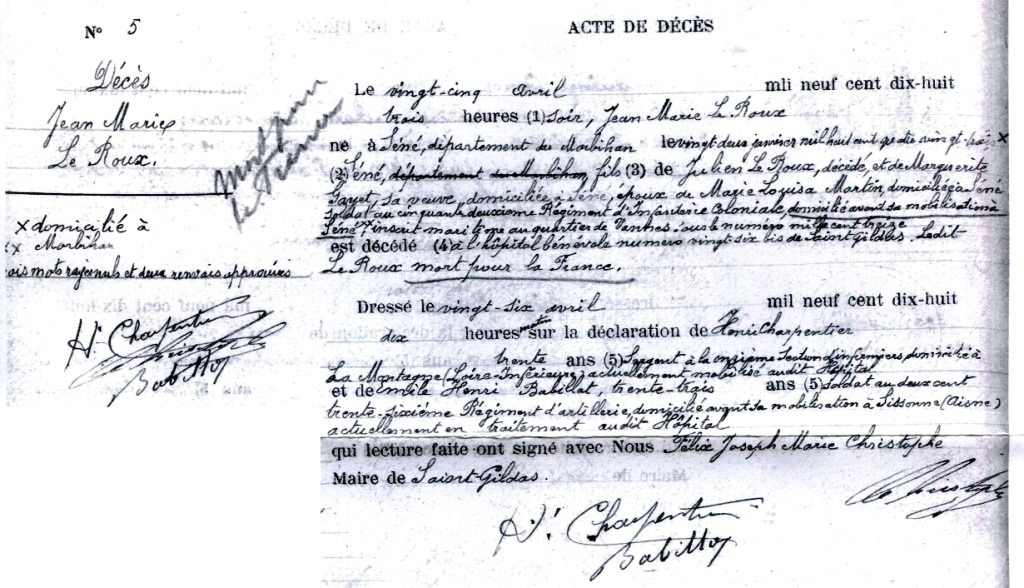 N° 5
ACTE DE DÉCÈS
Décès
Jean Marie
Le Roux.
Mort pour
la France
× domicilié à
Morbihan
mots rayés nuls et deux renvois approuvés
H. Charpentier
Babillot
Le vingt-cinq avril mil neuf cent dix-huit
trois heures (1) soir, Jean Marie Le Roux
né à Séné, département du Morbihan le vingt deux janvier mil huit cent quatre vingt-treize ×
(2) Séné, département du Morbihan, fils (3) de Julien Le Roux, décédé, et de Marguerite
sa veuve, domiciliée à Séné, époux de Marie Louisa Martin, domiciliée à Séné
soldat au cinquante deuxième Régiment d'Infanterie Coloniale, domicilié avant sa mobilisation à
Séné, inscrit maritime au quartier de Vannes, sous le numéro mille cent treize
est décédé (4) à l'hôpital bénévole numéro vingt-six bis de Saint Gildas. Ledit
Le Roux mort pour la France.
Dressé le vingt-six avril mil neuf cent dix-huit
dix heures matin sur la déclaration de Henri Charpentier
trente ans (5) Sergent à la onzième Section d'infirmiers domicilié à
La Montagne (Loire-Inférieure) actuellement mobilisé audit Hôpital
et de Emile Henri Babillot, trente-trois ans (5) soldat au deux cent
trente-sixième Régiment d'artillerie, domicilié avant sa mobilisation à Sissonne (Aisne)
actuellement en traitement audit Hôpital
qui lecture faite ont signé avec Nous Félix Joseph Marie Christophe
Maire de Saint-Gildas.
Christophe
H. Charpentier
Babillot